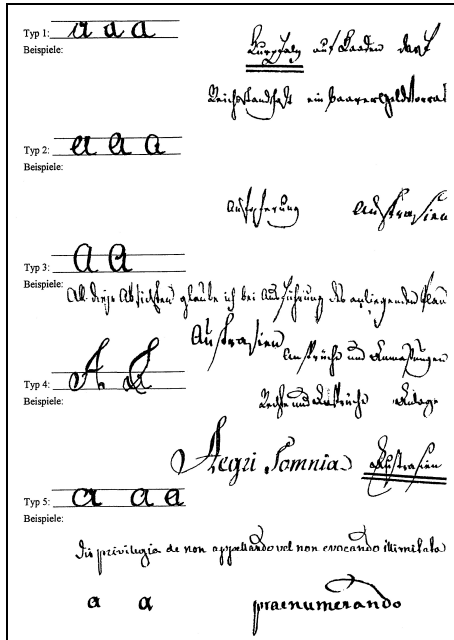 Typ 1: a a a
Beispiele:
Kurpfalz auf Baaden darf
Reichsstandschaft ein baarer Geldvorrat
Typ 2: a a a
Beispiele:
Aufopferung Australien
Typ 3: a a
Beispiele:
All diese Absichten glaube ich bei Ausführung des anliegenden Plan
Australien
Ansprüche und Anmaßungen
Typ 4: A A
Beispiele:
Rechte und Ansprüche Anlage
Aegri Somnia Australien
Typ 5: a a a
Beispiele:
die privilegia de non appellando vel non evocando illimitata
a a praenumerando